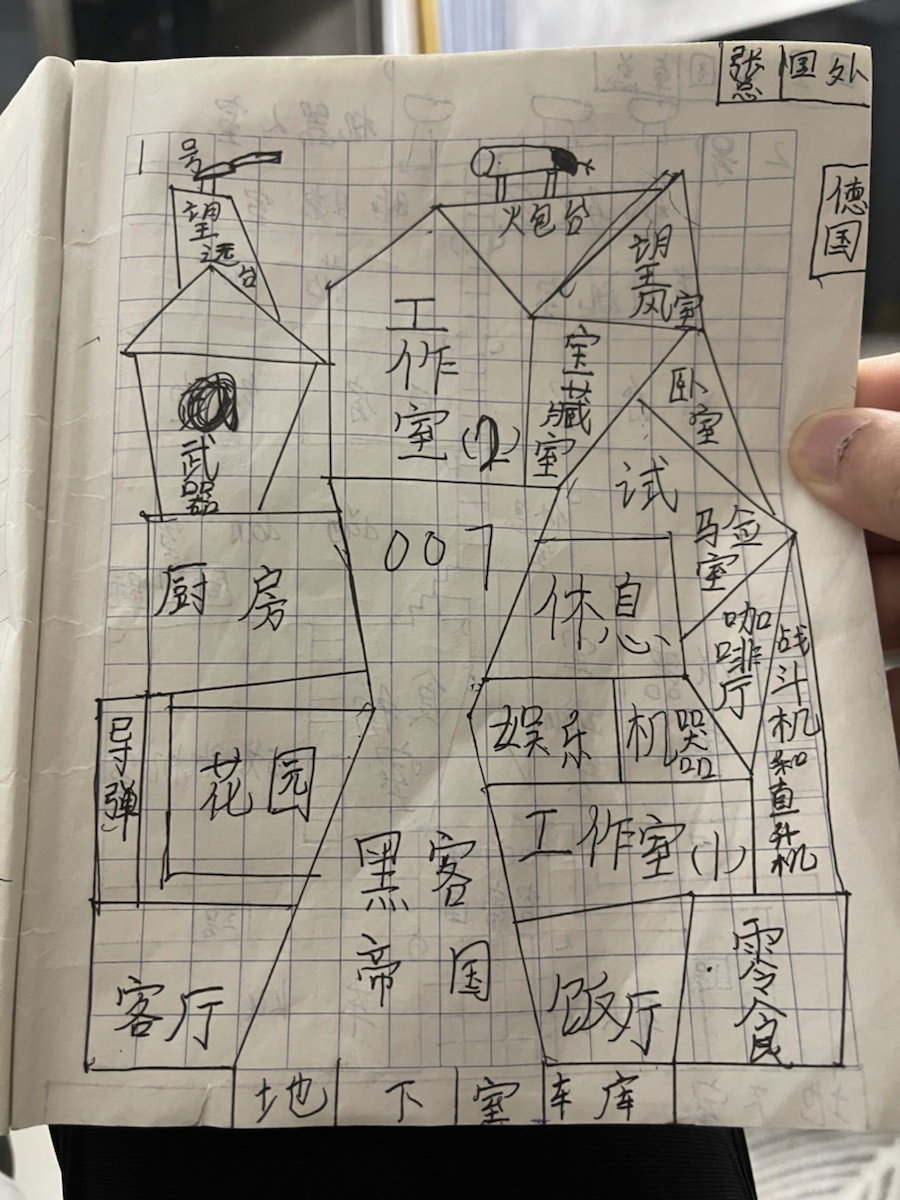 国外
德国
1号
望远台
火包台
望风室
工作室(2)
宝藏室
卧室
武器
试验室
007
厨房
休息
咖啡厅
战斗机和直升机
娱乐
机器
导弹
花园
工作室(1)
黑客
帝国
客厅
饭厅
零食
地下室
车库